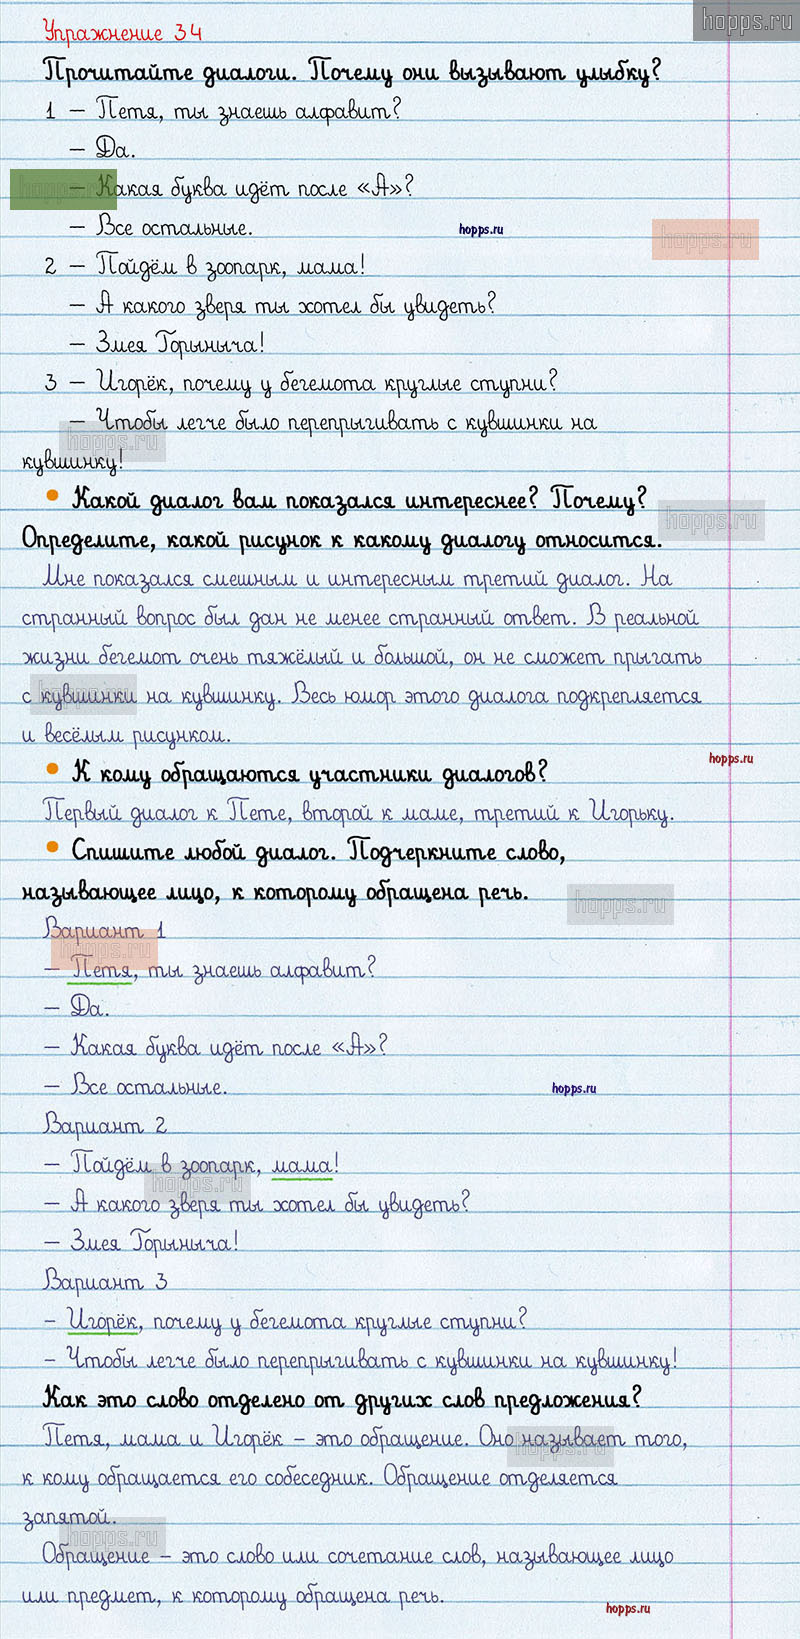 hopps.ru
Упражнение 34
Прочитайте диалоги. Почему они вызывают улыбку?
1 – Петя, ты знаешь алфавит?
– Да.
hopps.ru
– Какая буква идёт после «А»?
– Все остальные.
hopps.ru
hopps.ru
2 – Пойдём в зоопарк, мама!
– А какого зверя ты хотел бы увидеть?
– Змея Горыныча!
3 – Игорёк, почему у бегемота круглые ступни?
– Чтобы легче было перепрыгивать с кувшинки на
hopps.ru
кувшинку!
• Какой диалог вам показался интереснее? Почему?
hopps.ru
Определите, какой рисунок к какому диалогу относится.
Мне показался смешным и интересным третий диалог. На
странный вопрос был дан не менее странный ответ. В реальной
жизни бегемот очень тяжёлый и большой, он не сможет прыгать
с кувшинки на кувшинку. Весь юмор этого диалога подкрепляется
hopps.ru
и весёлым рисунком.
hopps.ru
• К кому обращаются участники диалогов?
Первый диалог к Пете, второй к маме, третий к Игорьку.
• Спишите любой диалог. Подчеркните слово,
называющее лицо, к которому обращена речь.
hopps.ru
Вариант 1
hopps.ru
– Петя, ты знаешь алфавит?
– Да.
– Какая буква идёт после «А»?
– Все остальные.
hopps.ru
Вариант 2
– Пойдём в зоопарк, мама!
hopps.ru
– А какого зверя ты хотел бы увидеть?
– Змея Горыныча!
Вариант 3
– Игорёк, почему у бегемота круглые ступни?
– Чтобы легче было перепрыгивать с кувшинки на кувшинку!
Как это слово отделено от других слов предложения?
Петя, мама и Игорёк – это обращение. Оно называет того,
hopps.ru
к кому обращается его собеседник. Обращение отделяется
запятой.
hopps.ru
Обращение – это слово или сочетание слов, называющее лицо
или предмет, к которому обращена речь.
hopps.ru